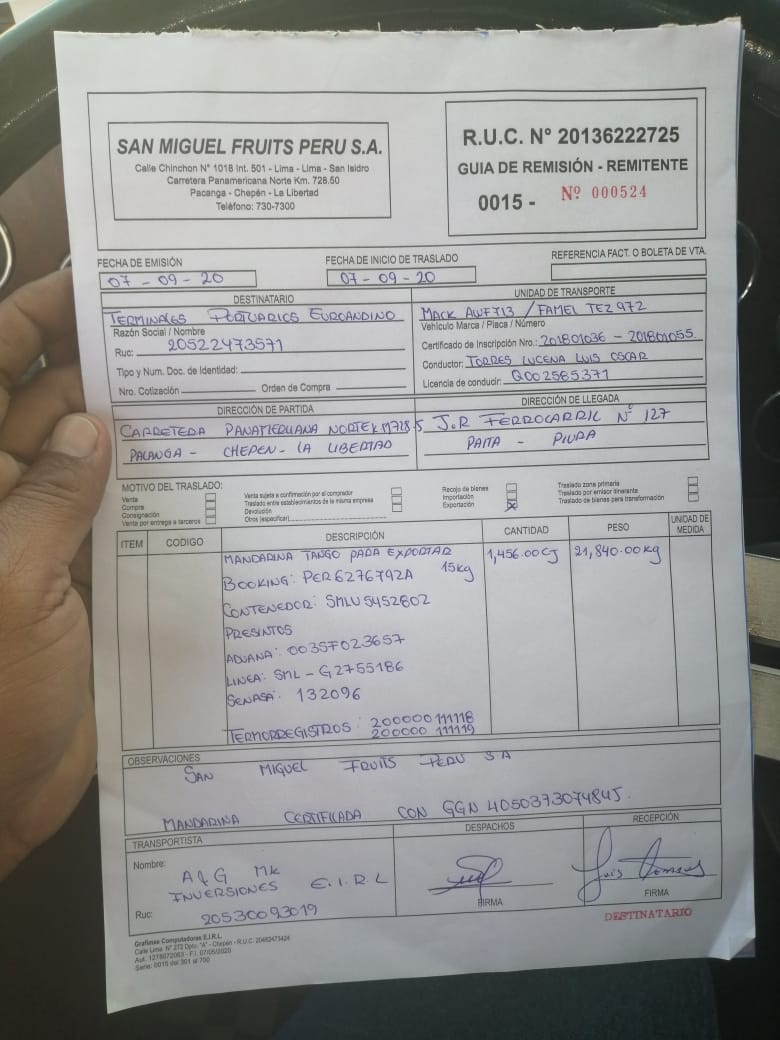 SAN MIGUEL FRUITS PERU S.A.
Calle Chinchon N° 1018 Int. 501 - Lima - Lima - San Isidro
Carretera Panamericana Norte Km. 728.50
Pacanga - Chepén - La Libertad
Teléfono: 730-7300
R.U.C. N° 20136222725
GUIA DE REMISIÓN - REMITENTE
0015 - Nº 000524
FECHA DE EMISIÓN
07 - 09 - 20
FECHA DE INICIO DE TRASLADO
07 - 09 - 20
REFERENCIA FACT. O BOLETA DE VTA.
DESTINATARIO
TERMINALES PORTUARIOS EUROANDINO
Razón Social / Nombre
Ruc: 20522473571
Tipo y Num. Doc. de Identidad:
Nro. Cotización Orden de Compra
UNIDAD DE TRANSPORTE
MACK AWF713 / FAMEL TEZ972
Vehículo Marca / Placa / Número
Certificado de Inscripción Nro.: 201801036 - 201801055
Conductor: TORRES LUCENA LUIS OSCAR
Licencia de conducir: Q002585371
DIRECCIÓN DE PARTIDA
CARRETERA PANAMERIUANA NORTE KM728.5
PALANGA - CHEPEN - LA LIBERTAD
DIRECCIÓN DE LLEGADA
J.R FERROCARRIL N° 127
PAITA - PIURA
MOTIVO DEL TRASLADO:
Venta
Compra
Consignación
Venta por entrega a terceros
Venta sujeta a confirmación por el comprador
Traslado entre establecimientos de la misma empresa
Devolución
Otros (especificar)
Recojo de bienes
Importación
Exportación X
Traslado zona primaria
Traslado por emisor itinerante
Traslado de bienes para transformación
ITEM CODIGO DESCRIPCIÓN CANTIDAD PESO UNIDAD DE MEDIDA
MANDARINA TANGO PARA EXPORTAR 1,456.00CJ 21,840.00Kg
BOOKING: PER6276792A 15kg
CONTENEDOR: SMLU5452802
PRESINTOS
ADUANA: 00357023657
LINEA: SML - G2755186
SENASA: 132096
TERMORREGISTROS: 200000111118
200000 111119
OBSERVACIONES
SAN MIGUEL FRUITS PERU SA
MANDARINA CERTIFICADA CON GGN 4050373074845.
TRANSPORTISTA
Nombre: A & G MK
INVERSIONES E.I.R.L
Ruc: 20530093019
DESPACHOS
FIRMA
RECEPCIÓN
FIRMA
DESTINATARIO
Grafimas Computadoras E.I.R.L.
Calle Lima N° 272 Dpto. "A" - Chepén - R.U.C. 20482473424
Aut. 1278072083 - F.I. 07/05/2020
Serie: 0015 del 301 al 700